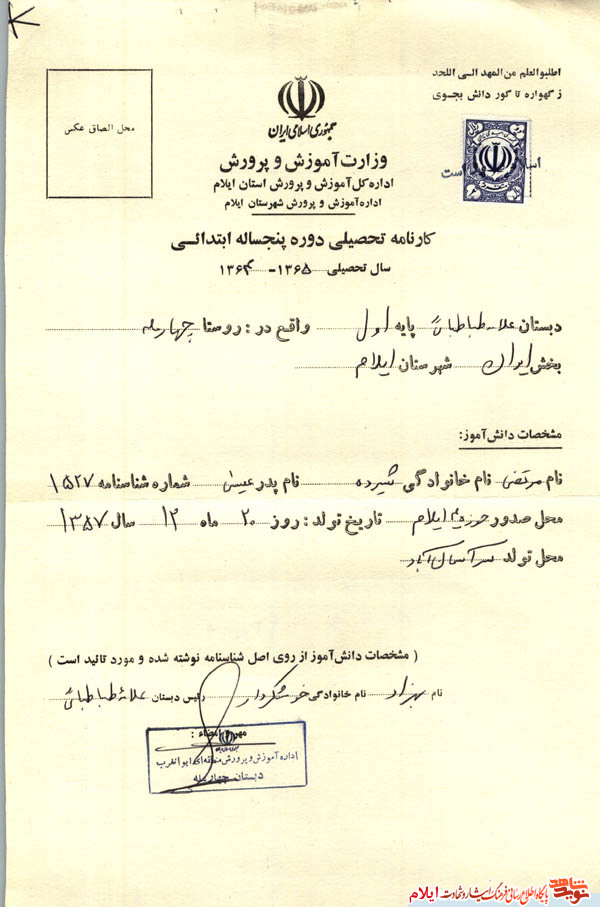 اطلبوالعلم من المهد الی اللحد
ز گهواره تا گور دانش بجوی
محل الصاق عکس
جمهوری اسلامی ایران
وزارت آموزش و پرورش
اداره کل آموزش و پرورش استان ایلام
اداره آموزش و پرورش شهرستان ایلام
کارنامه تحصیلی دوره پنجساله ابتدائی
سال تحصیلی ۱۳۶۵ - ۱۳۶۴
دبستان علامه طباطبائی پایه اول واقع در : روستا چهارمله
بخش شهرستان ایلام
مشخصات دانش‌آموز:
نام مرتضی نام خانوادگی شیرده نام پدر عیسی شماره شناسنامه ۱۵۲۷
محل صدور حوزه ایلام تاریخ تولد : روز ۲۰ ماه ۱۲ سال ۱۳۵۷
محل تولد
( مشخصات دانش‌آموز از روی اصل شناسنامه نوشته شده و مورد تائید است )
نام بهزاد نام خانوادگی رئیس دبستان علامه طباطبائی
مهر و امضاء :
اداره آموزش و پرورش منطقه‌ای ایوانغرب
دبستان چهارمله
نوید شاهد
پایگاه اطلاع رسانی فرهنگ ایثار و شهادت ایلام